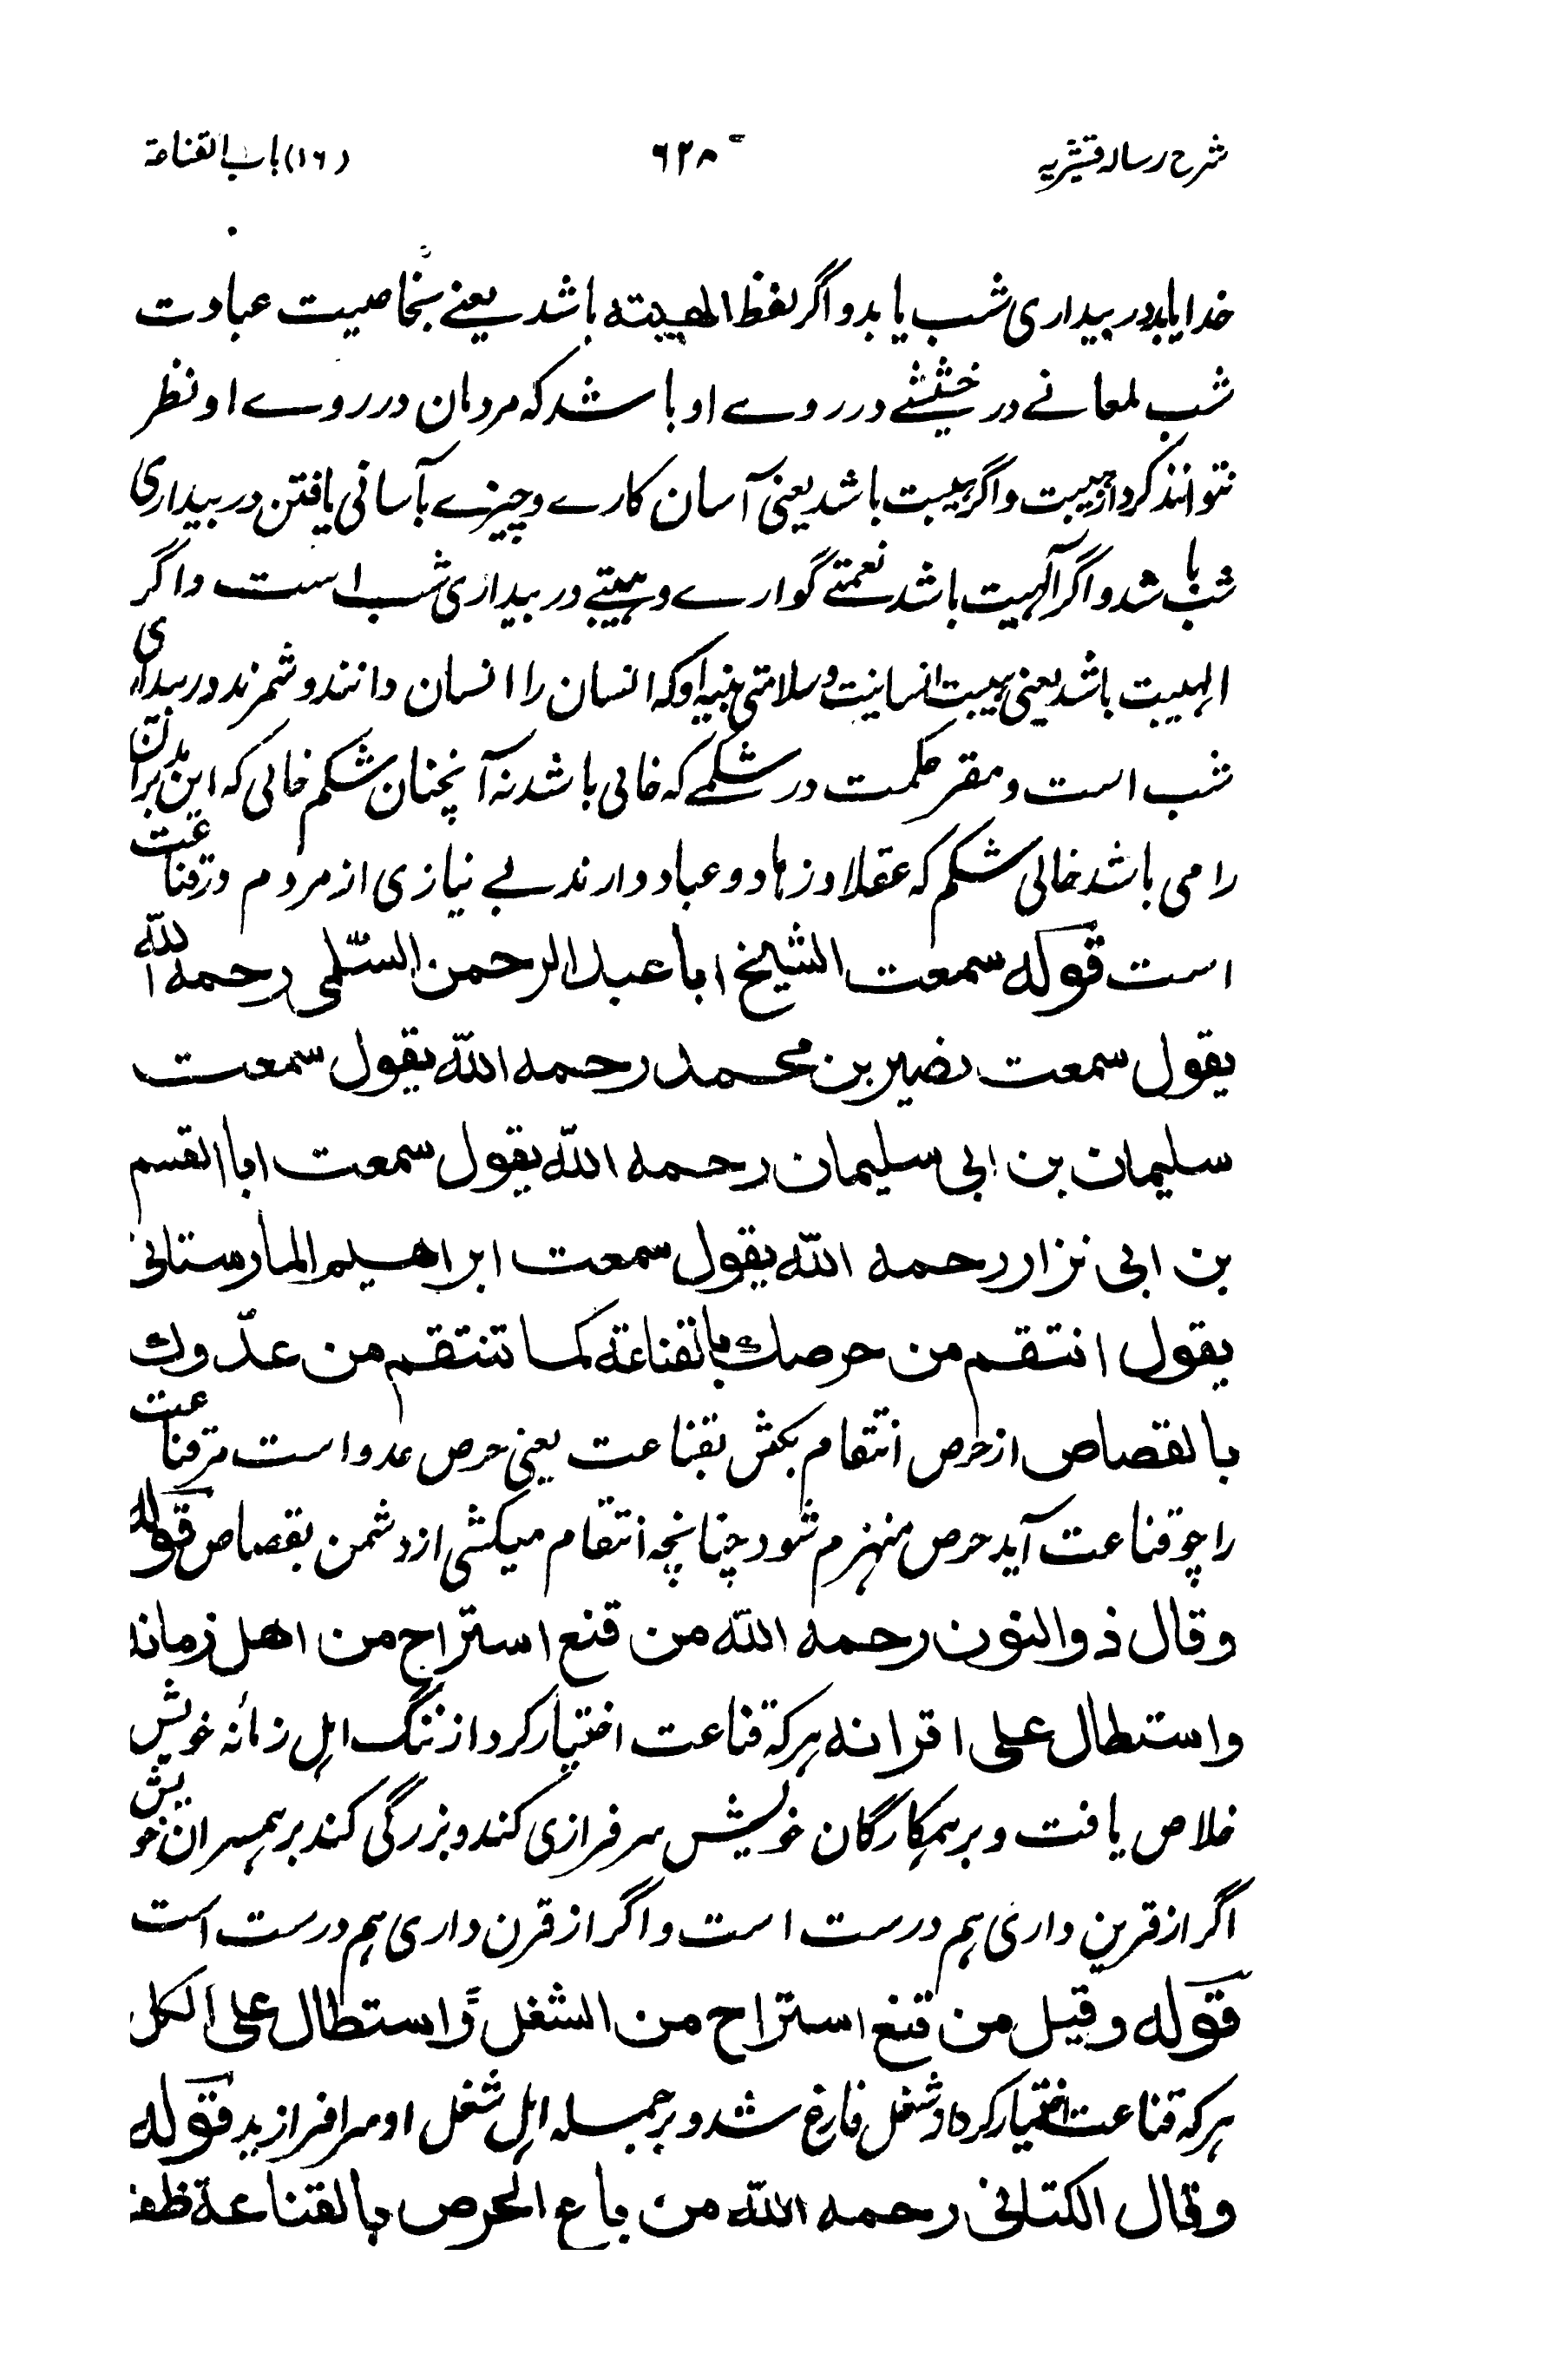 شرح رساله قشیریه ۶۲۸ (۱۶) باب القناعة
خدا یابد در بیداری شب یابد و اگر لفظ الهیبته باشد یعنے بخاصیت عبادت
شب لمعانے درخششے در روے او باشد که مردمان در روے او نظر
نتوانند کرد از هیبت و اگر هیبت باشد یعنی آسان کارے و چیزے بآسانی یافتن در بیداری
شب باشد و اگر آلهیت باشد نعمتے گوارے و هیبتے در بیداری شب است و اگر
الهیبت باشد یعنی هیبت انسانیت و سلامتی بنیه او که انسان را انسان دانند و شمرند در بیداری
شب است و مقر حکمت در شکمے که خالی باشد نه آنچنان شکم خالی که این بدبران
را می باشد خالی شکم که عقلا و زهاد و عباد دارند بے نیازی از مردم در قناعت
است قوله سمعت الشیخ ابا عبد الرحمن السّلمی رحمه اللّه
یقول سمعت نصیر بن محمد رحمه اللّه یقول سمعت
سلیمان بن ابی سلیمان رحمه اللّه یقول سمعت ابا القسم
بن ابی نزار رحمه اللّه یقول سمعت ابراهیم المارستانی
یقول انتقم من حرصك بالقناعة کما تنتقم من عدّوك
بالقصاص از حرص انتقام بکش بقناعت یعنی حرص عدو است مر قناعت
را چو قناعت آید حرص منهزم شود چنانچه انتقام میکشی از دشمن بقصاص قوله
وقال ذو النون رحمه اللّه من قنع استراح من اهل زمانه
واستطال علی اقرانه هر که قناعت اختیار کرد از ننگ اهل زمانۂ خویش
خلاص یافت و بر همکارگان خویش سرفرازی کند و بزرگی کند بر همسران خویش
اگر از قرین داری هم درست است و اگر از قرن داری هم درست است
قوله وقیل من قنع استراح من الشغل واستطال علی الکل
هر که قناعت اختیار کرد او شغل فارغ شد و بر جمله اهل شغل او سرافرازید قوله
وقال الکتانی رحمه اللّه من باع الحرص بالقناعة ظفر